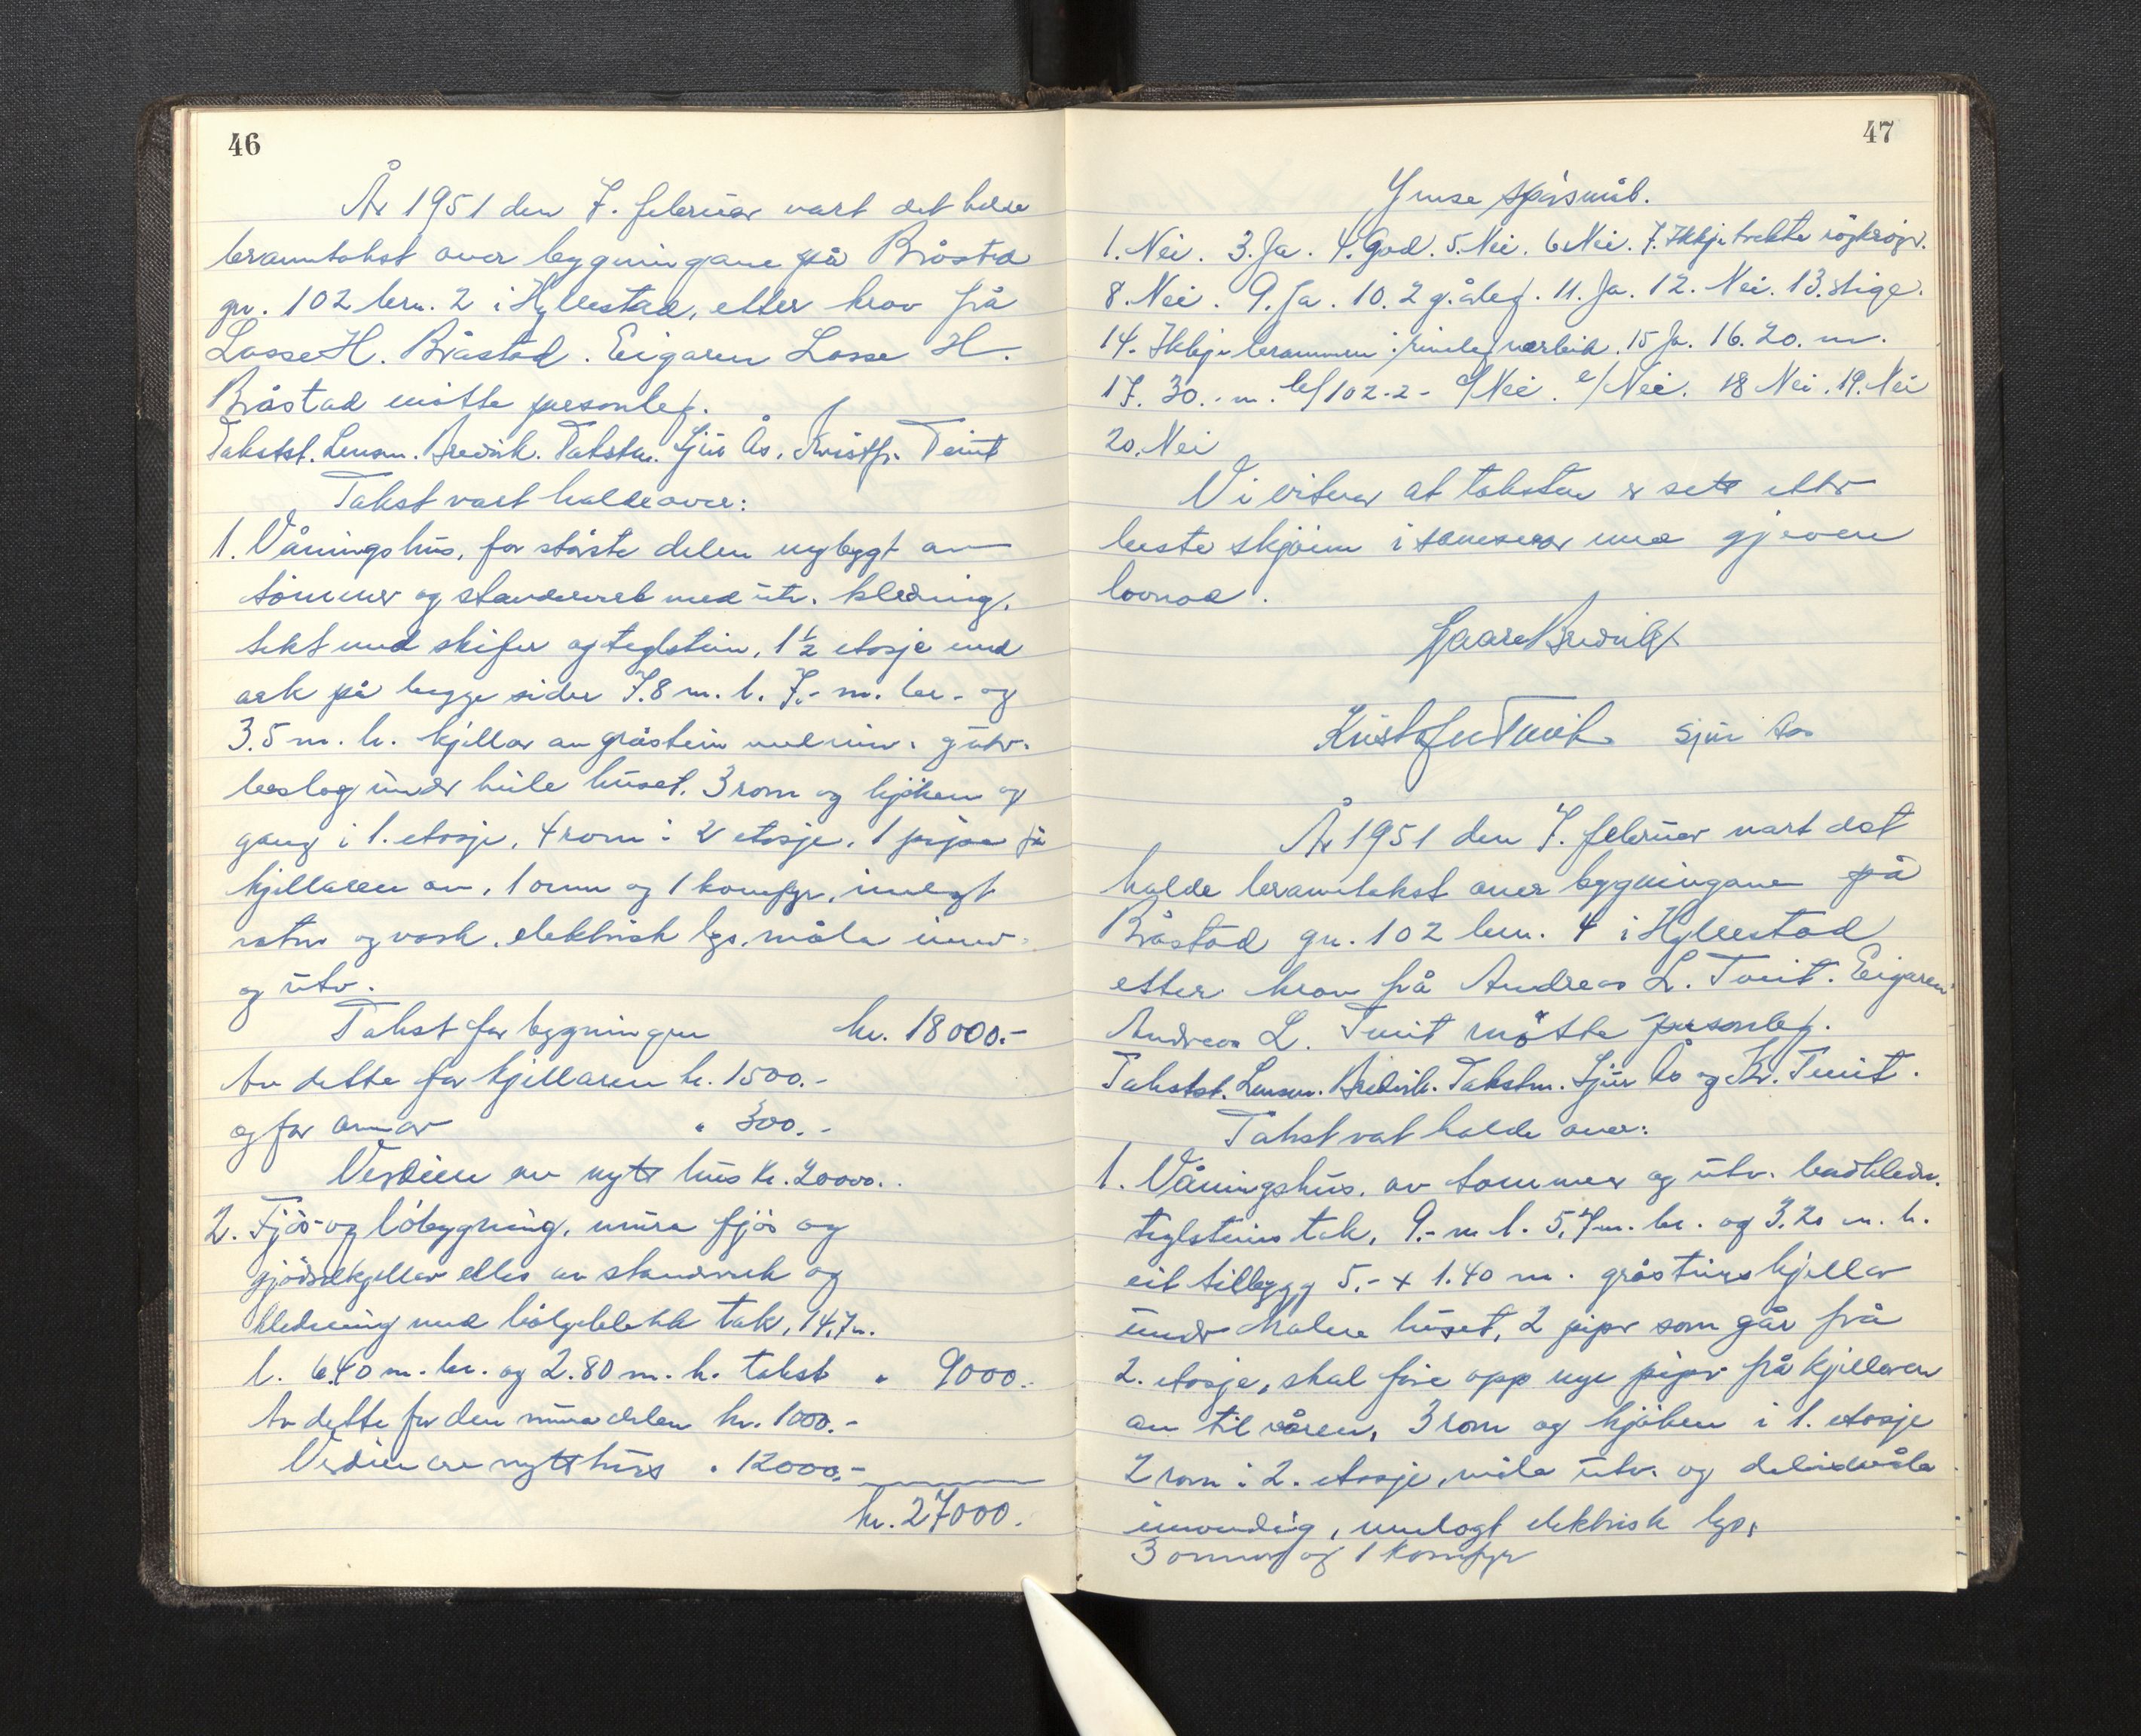 46
År 1951 den 7. februar vart det halde
branntakst over bygningane på Bråstad
gn. 102 brn. 2 i Hyllestad, etter krav frå
Lasse H. Bråstad. Eigaren Lasse H.
Bråstad møtte personleg.
Takstst. Lensm. Bredvik. Takstm. Sjur Ås, Kristf. Tveit
Takst vart halde over:
1. Våningshus, for største delen nybygt av
tømmer og standverek med utv. kledning,
tekt med skifer og teglstein, 1½ etasje med
ark på begge sider 7.8 m. l. 7.- m. br. og
3.5 m. h. kjellar av gråstein med innv. gutv.
beslag under heile huset. 3 rom og kjøken og
gang i 1. etasje, 4 rom i 2 etasje. 1 pipe frå
kjellaren av, 1 omn og 1 komfyr, innlagt
vatn og vask, elektrisk lys, måla innv.
og utv.
Takst for bygningen kr. 18000.-
Av dette for kjellaren kr. 1500.-
og for omnar " 300.-
Verdien av nytt hus kr. 20000..
2. Fjøs- og løbygning, mura fjøs og
gjødselkjellar elles av standverk og
kledning med bølgeblekk tak, 14,7 m.
l. 6.40 m. br. og 2.80 m. h. takst " 9000.-
Av dette for den mura delen kr. 1000.-
Verdien av nytt hus " 12000.-
kr. 27000.
47
Ymse spørsmål.
1. Nei. 3. Ja. 4. God. 5. Nei. 6. Nei. 7. Ikkje trekte røykrøyr.
8. Nei. 9. Ja. 10. 2 g. årleg. 11. Ja. 12. Nei. 13. Stige.
14. Ikkje berammen i rimeleg nærleik. 15 Ja. 16. 20. m.
17. 30.- m. b/ 102-2- d/ Nei. e/ Nei. 18 Nei. 19. Nei
20. Nei
Vi vitnar at taksten er sett etter
beste skjønn i samsvar med gjeven
lovnad.
Kaare Bredvik
Kristofer Tveit Sjur Ås
År 1951 den 7. februar vart det
halde branntakst over bygningane på
Bråstad gn. 102 brn. 4 i Hyllestad
etter krav frå Andreas L. Tveit. Eigaren
Andreas L. Tveit møtte personleg.
Takstst. Lensm. Bredvik. Takstm. Sjur Ås og Kr. Tveit.
Takst vat halde over:
1. Våningshus, av tømmer og utv. bordkledn.
teglsteins tak, 9.- m l. 5,7 m. br. og 3.20 m. h.
eit tillbygg 5.- x 1.40 m. gråsteins kjellar
under halve huset, 2 piper som går frå
2. etasje, skal føre opp nye piper frå kjellaren
av til våren, 3 rom og kjøken i 1. etasje
2 rom i 2. etasje, måla utv. og delvis måla
innvendig, innlagt elektrisk lys,
3 omnar og 1 komfyr